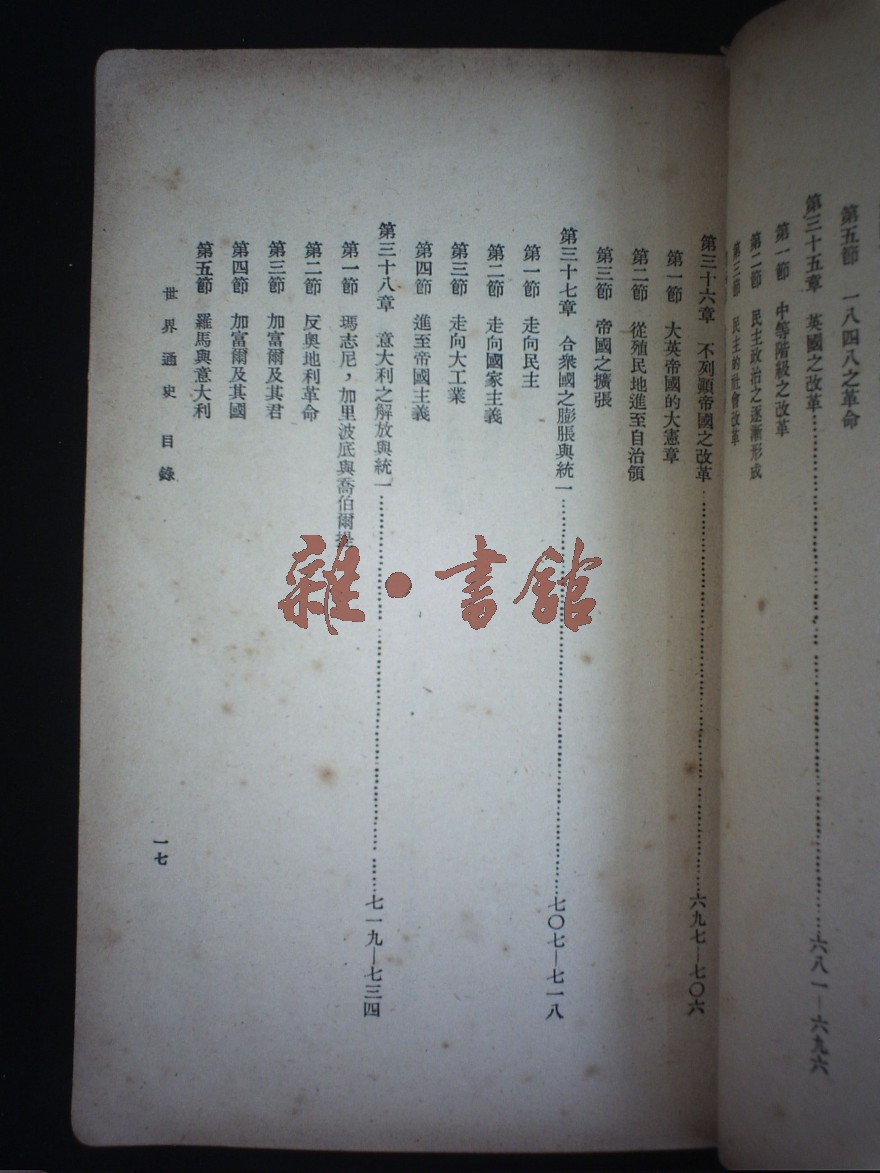 第五節　一八四八之革命
第三十五章　英國之改革……六八一—六九六
第一節　中等階級之改革
第二節　民主政治之逐漸形成
第三節　民主的社會改革
第三十六章　不列顛帝國之改革……六九七—七〇六
第一節　大英帝國的大憲章
第二節　從殖民地進至自治領
第三節　帝國之擴張
第三十七章　合衆國之膨脹與統一……七〇七—七一八
第一節　走向民主
第二節　走向國家主義
第三節　走向大工業
第四節　進至帝國主義
第三十八章　意大利之解放與統一……七一九—七三四
第一節　瑪志尼，加里波底與喬伯爾提
第二節　反奧地利革命
第三節　加富爾及其君
第四節　加富爾及其國
第五節　羅馬與意大利
世界通史　目錄
一七
雜·書館